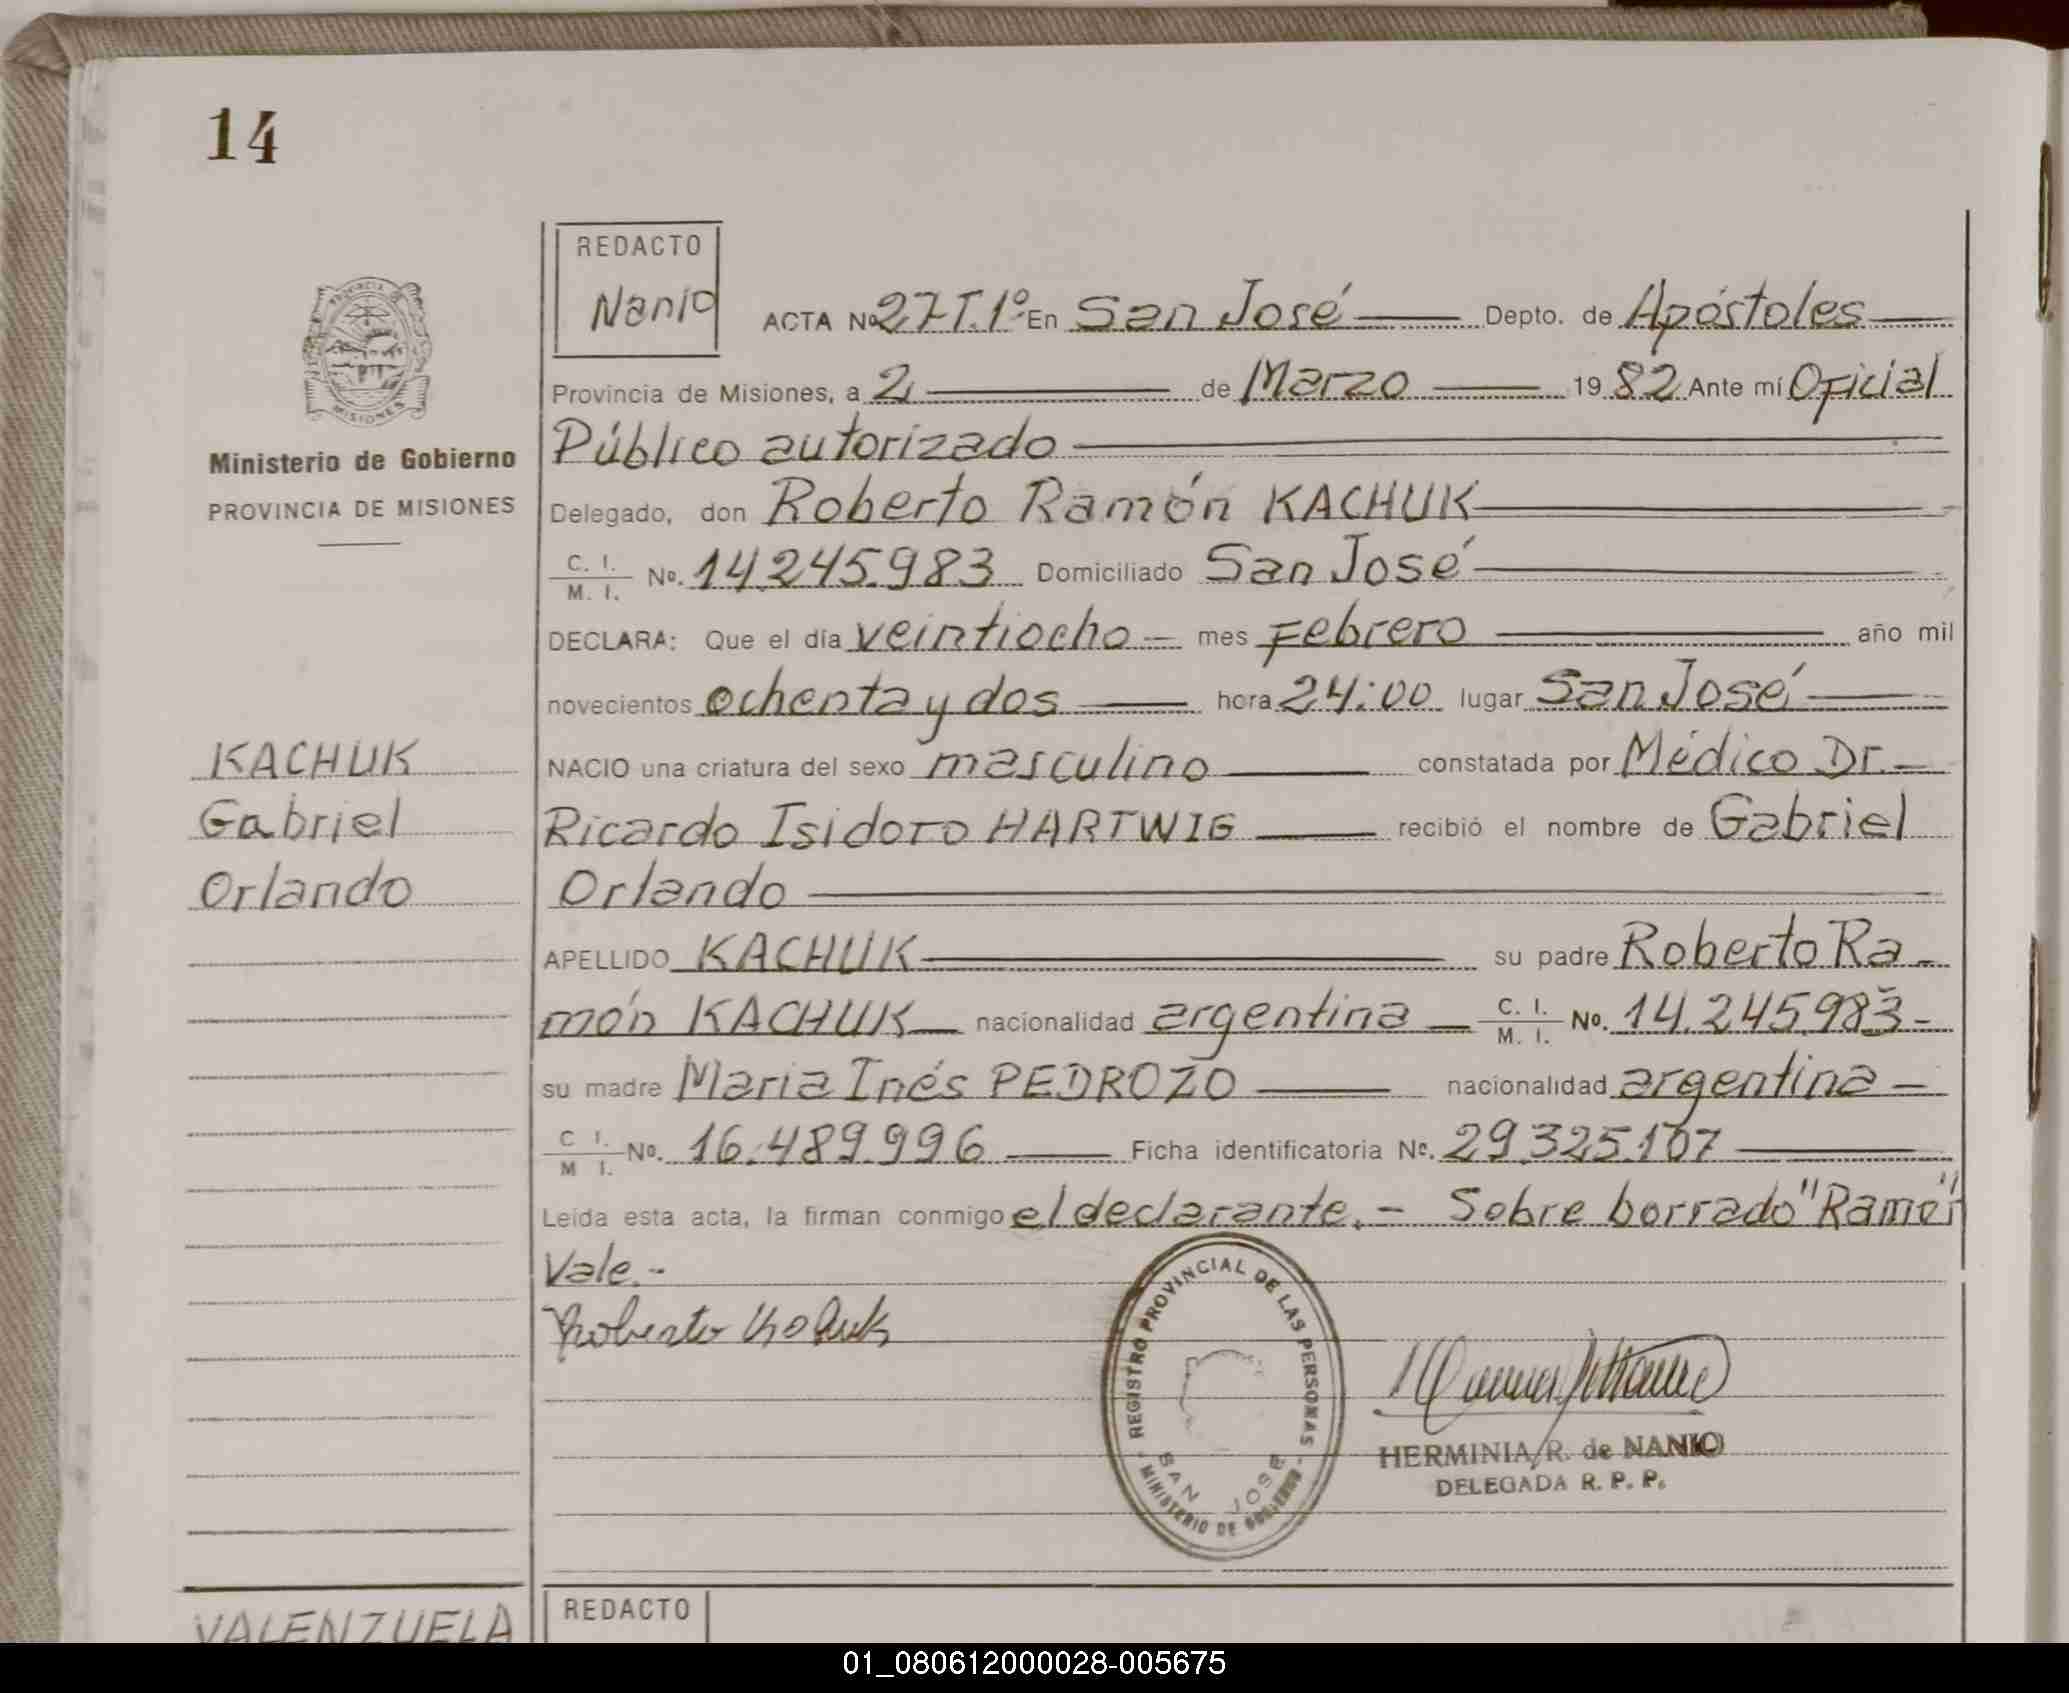 14
REDACTO
Nanio
ACTA Nº 27 T.1º En San José Depto. de Apóstoles
Provincia de Misiones, a 2 de Marzo 1982 Ante mí Oficial
Público autorizado
Delegado, don Roberto Ramón KACHUK
C. I.
M. I. Nº. 14.245.983 Domiciliado San José
DECLARA: Que el día veintiocho mes Febrero año mil
novecientos ochenta y dos hora 24:00 lugar San José
NACIO una criatura del sexo masculino constatada por Médico Dr.-
Ricardo Isidoro HARTWIG recibió el nombre de Gabriel
Orlando
APELLIDO KACHUK su padre Roberto Ra-
món KACHUK nacionalidad argentina C. I.
M. I. Nº. 14.245.983-
su madre Maria Inés PEDROZO nacionalidad argentina
C I.
M I. Nº. 16.489.996 Ficha identificatoria Nº. 29.325.107
Leída esta acta, la firman conmigo el declarante.- Sobre borrado "Ramó"
Vale.-
Roberto Kachuk
REGISTRO PROVINCIAL DE LAS PERSONAS
SAN JOSE
MINISTERIO DE GOBIERNO
HERMINIA R. de NANIO
DELEGADA R. P. P.
PROVINCIA DE
MISIONES
Ministerio de Gobierno
PROVINCIA DE MISIONES
KACHUK
Gabriel
Orlando
VALENZUELA
REDACTO
01_080612000028-005675